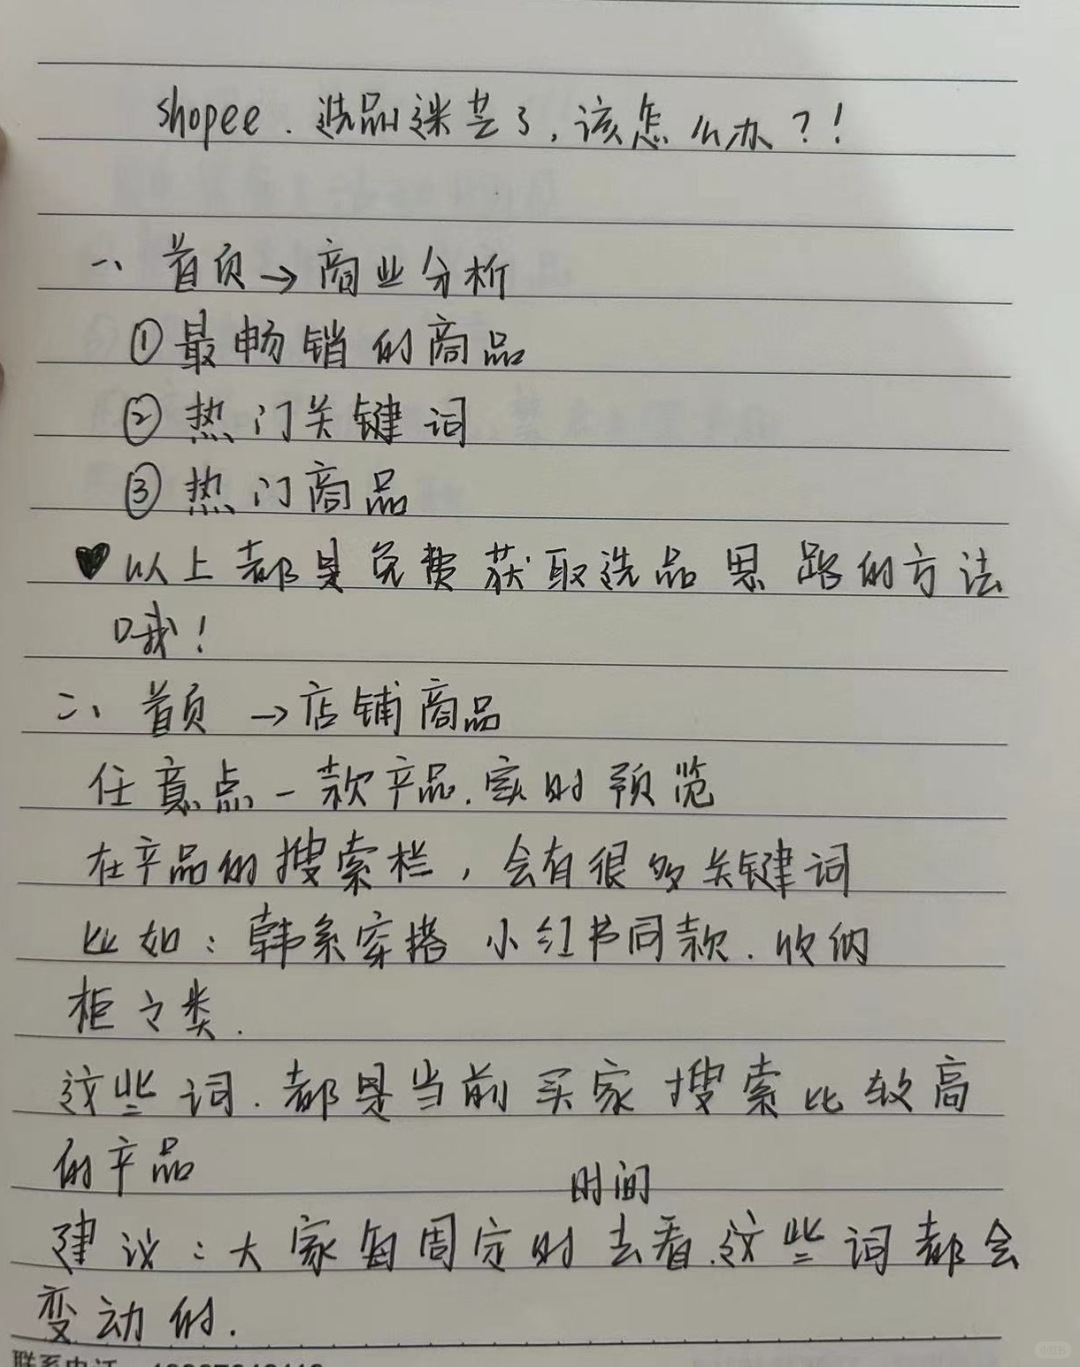 shopee. 选品迷茫了,该怎么办?!
一、首页→商业分析
①最畅销的商品
②热门关键词
③热门商品
♥以上都是免费获取选品思路的方法
哦!
二、首页→店铺商品
任意点一款产品.实时预览
在产品的搜索栏,会有很多关键词
比如:韩系穿搭 小红书同款.收纳
柜之类.
这些词.都是当前买家搜索比较高
的产品
时间
建议:大家每周定时去看.这些词都会
变动的.
联系电话
小红书